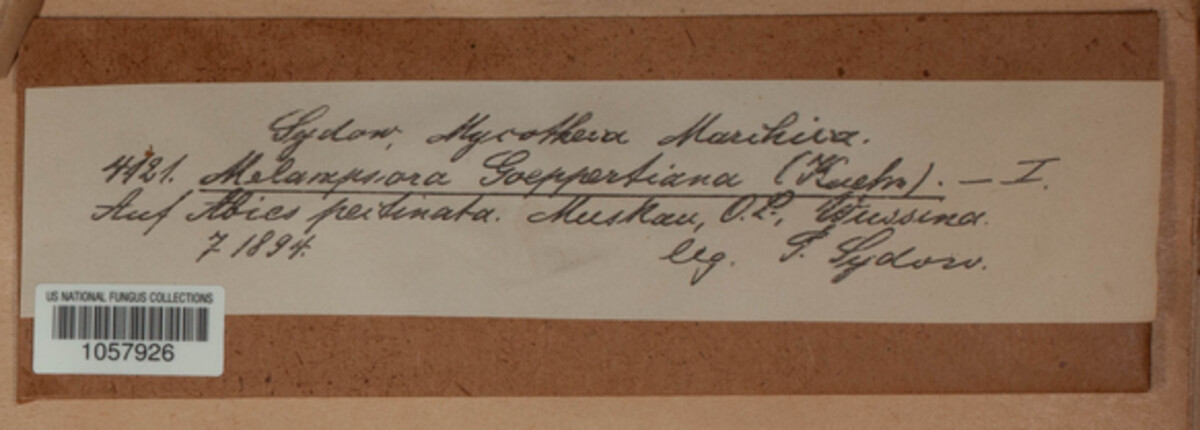 Sydow, Mycotheca Marchica.
4121. Melampsora Goeppertiana (Kuehn). — I.
Auf Abies pectinata. Muskau, O.L.,
7 1894. leg. P. Sydow.
US NATIONAL FUNGUS COLLECTIONS
1057926